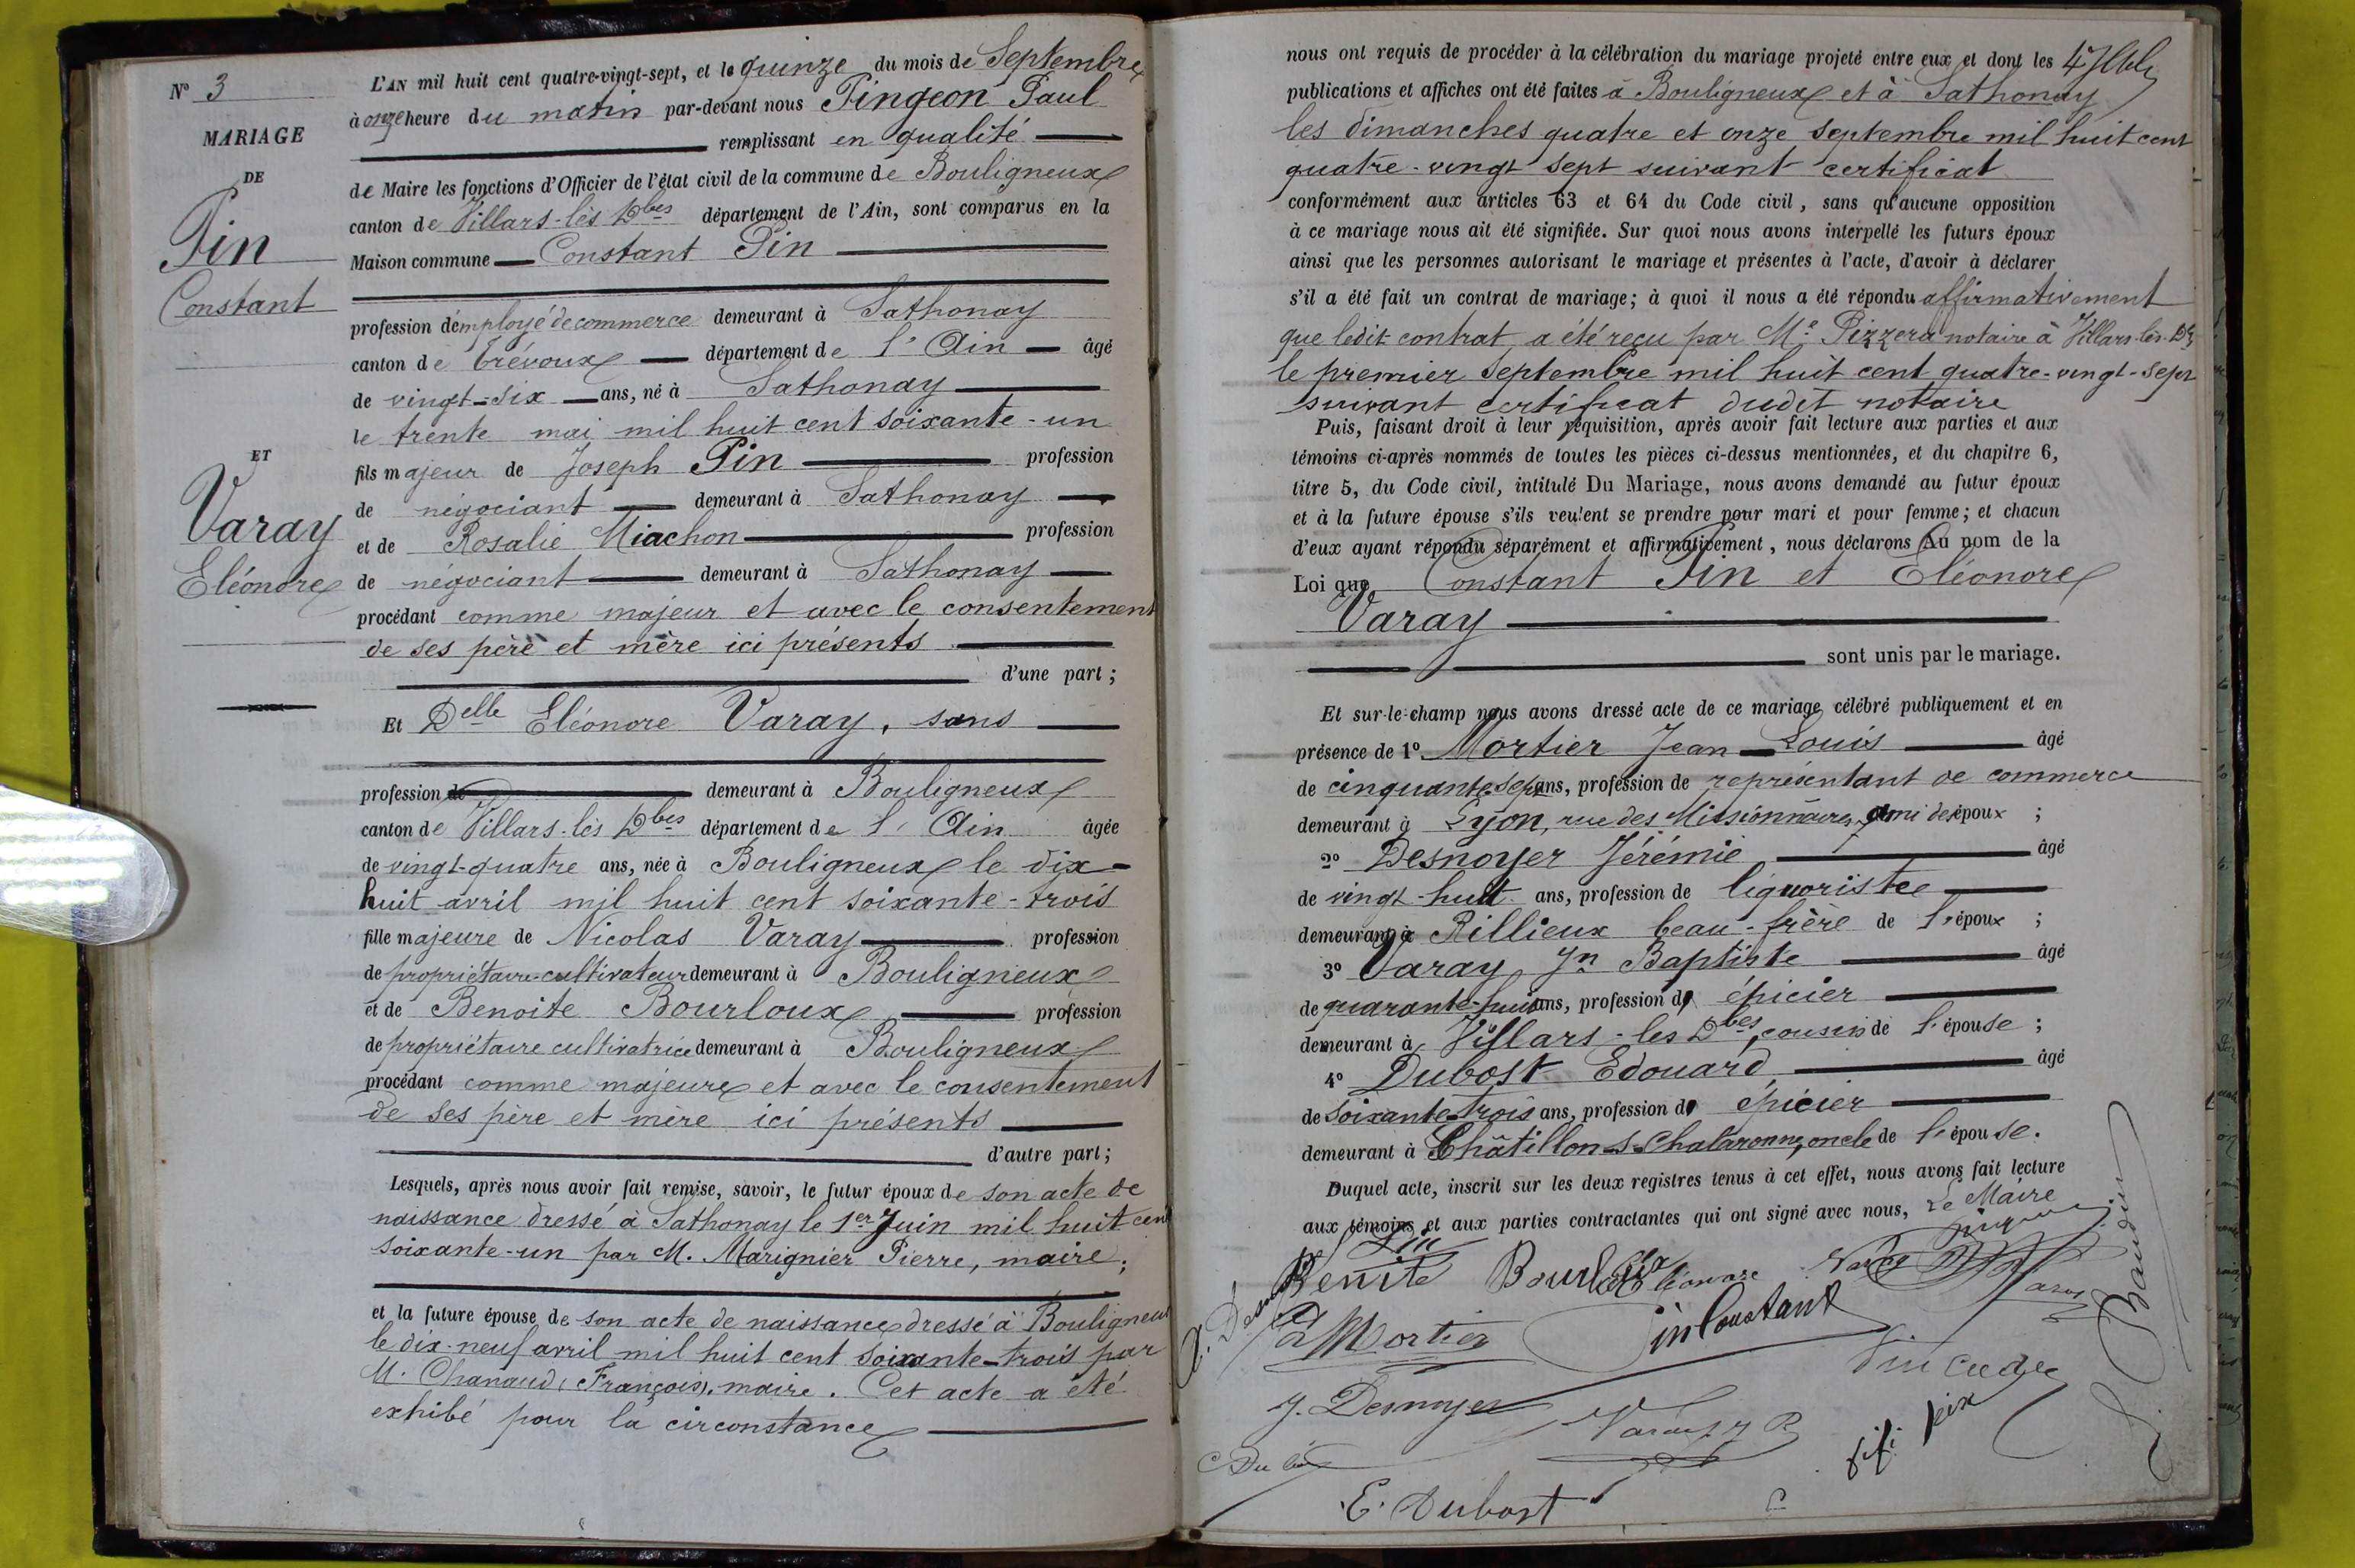 N° 3
MARIAGE
DE
Pin
Constant
ET
Varay
Eléonore
L'AN mil huit cent quatre-vingt-sept, et le quinze du mois de Septembre
à onze heure du matin par-devant nous Pingeon Paul
remplissant en qualité
de Maire les fonctions d'Officier de l'état civil de la commune de Bouligneux
canton de Villars-lès Dbes département de l'Ain, sont comparus en la
Maison commune Constant Pin
profession d'employé de commerce demeurant à Sathonay
canton de Trévoux département de l'Ain âgé
de vingt-six ans, né à Sathonay
le trente mai mil huit cent soixante-un
fils majeur de Joseph Pin profession
de négociant demeurant à Sathonay
et de Rosalie Miachon profession
de négociant demeurant à Sathonay
procédant comme majeur et avec le consentement
de ses père et mère ici présents
d'une part;
Et Delle Eléonore Varay, sans
profession de demeurant à Bouligneux
canton de Villars-lès Dbes département de l'Ain âgée
de vingt-quatre ans, née à Bouligneux le dix-
huit avril mil huit cent soixante-trois
fille majeure de Nicolas Varay profession
de propriétaire-cultivateur demeurant à Bouligneux
et de Benoite Bourloux profession
de propriétaire cultivatrice demeurant à Bouligneux
procédant comme majeure et avec le consentement
de ses père et mère ici présents
d'autre part;
Lesquels, après nous avoir fait remise, savoir, le futur époux de son acte de
naissance dressé à Sathonay le 1er Juin mil huit cent
soixante-un par M. Marignier Pierre, maire;
et la future épouse de son acte de naissance dressé à Bouligneux
le dix-neuf avril mil huit cent soixante-trois par
M. Chanaud (François), maire. Cet acte a été
exhibé pour la circonstance
nous ont requis de procéder à la célébration du mariage projeté entre eux et dont les
publications et affiches ont été faites à Bouligneux et à Sathonay
les dimanches quatre et onze septembre mil huit cent
quatre-vingt sept suivant certificat
conformément aux articles 63 et 64 du Code civil, sans qu'aucune opposition
à ce mariage nous ait été signifiée. Sur quoi nous avons interpellé les futurs époux
ainsi que les personnes autorisant le mariage et présentes à l'acte, d'avoir à déclarer
s'il a été fait un contrat de mariage; à quoi il nous a été répondu affirmativement
que ledit contrat a été reçu par Me Pizzera notaire à Villars-lès-Dbes
le premier Septembre mil huit cent quatre-vingt-sept
suivant certificat dudit notaire
Puis, faisant droit à leur réquisition, après avoir fait lecture aux parties et aux
témoins ci-après nommés de toutes les pièces ci-dessus mentionnées, et du chapitre 6,
titre 5, du Code civil, intitulé Du Mariage, nous avons demandé au futur époux
et à la future épouse s'ils veulent se prendre pour mari et pour femme; et chacun
d'eux ayant répondu séparément et affirmativement, nous déclarons Au nom de la
Loi que Constant Pin et Eléonore
Varay
sont unis par le mariage.
Et sur-le-champ nous avons dressé acte de ce mariage célébré publiquement et en
présence de 1° Mortier Jean-Louis âgé
de cinquante-sept ans, profession de représentant de commerce
demeurant à Lyon, rue des Missionnaires, ami des époux;
2° Desnoyer Jérémie âgé
de vingt-huit ans, profession de liquoriste
demeurant à Rillieux beau-frère de l'époux;
3° Varay Jn Baptiste âgé
de quarante-huit ans, profession d' épicier
demeurant à Villars-les Dbes, cousin de l'épouse;
4° Dubost Edouard âgé
de soixante-trois ans, profession d' épicier
demeurant à Châtillon-s-Chalaronne, oncle de l'épouse.
Duquel acte, inscrit sur les deux registres tenus à cet effet, nous avons fait lecture
aux témoins et aux parties contractantes qui ont signé avec nous, Le Maire
Pin
Benite Bourloux
Mortier
Pin Constant
J. Desnoyer
Varay J B
fifi pin
J. Baudin
E. Dubost